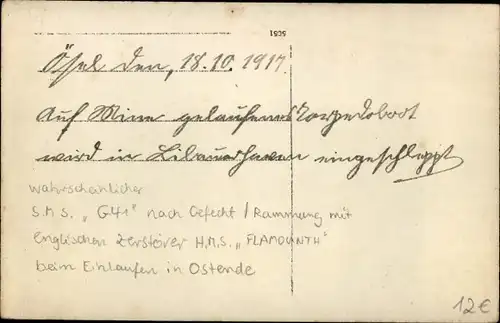 5051
Ösel den, 18.10.1917
Auf Mine gelaufenes Torpedoboot
wird in Libauerhaven eingeschleppt
wahrscheinlicher
S.M.S. „G41" nach Gefecht / Rammung mit
englischen Zerstörer H.M.S. „FLAMOUNTH"
beim Einlaufen in Ostende
12€